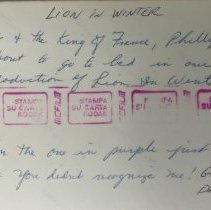 LION IN WINTER
& the King of France, Phillip
out to go to bed in our
roduction of Lion In Winte
STAMPA SU CARTA KODAK
STAMPA SU CARTA KODAK
PA CARTA KODAK
STAMPA SU CARTA KODAK
the one in purple just
You didn't recognize me!